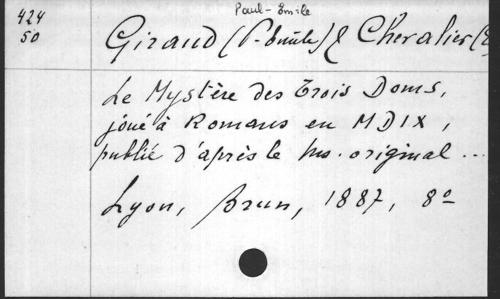 424
50
Paul-Emile
Giraud (P-Emile) & Chevalier (
Le Mystère des Trois Doms,
joué à Romans en MDIX,
publié d'après le ms. original ...
Lyon, Brun, 1887, 8°